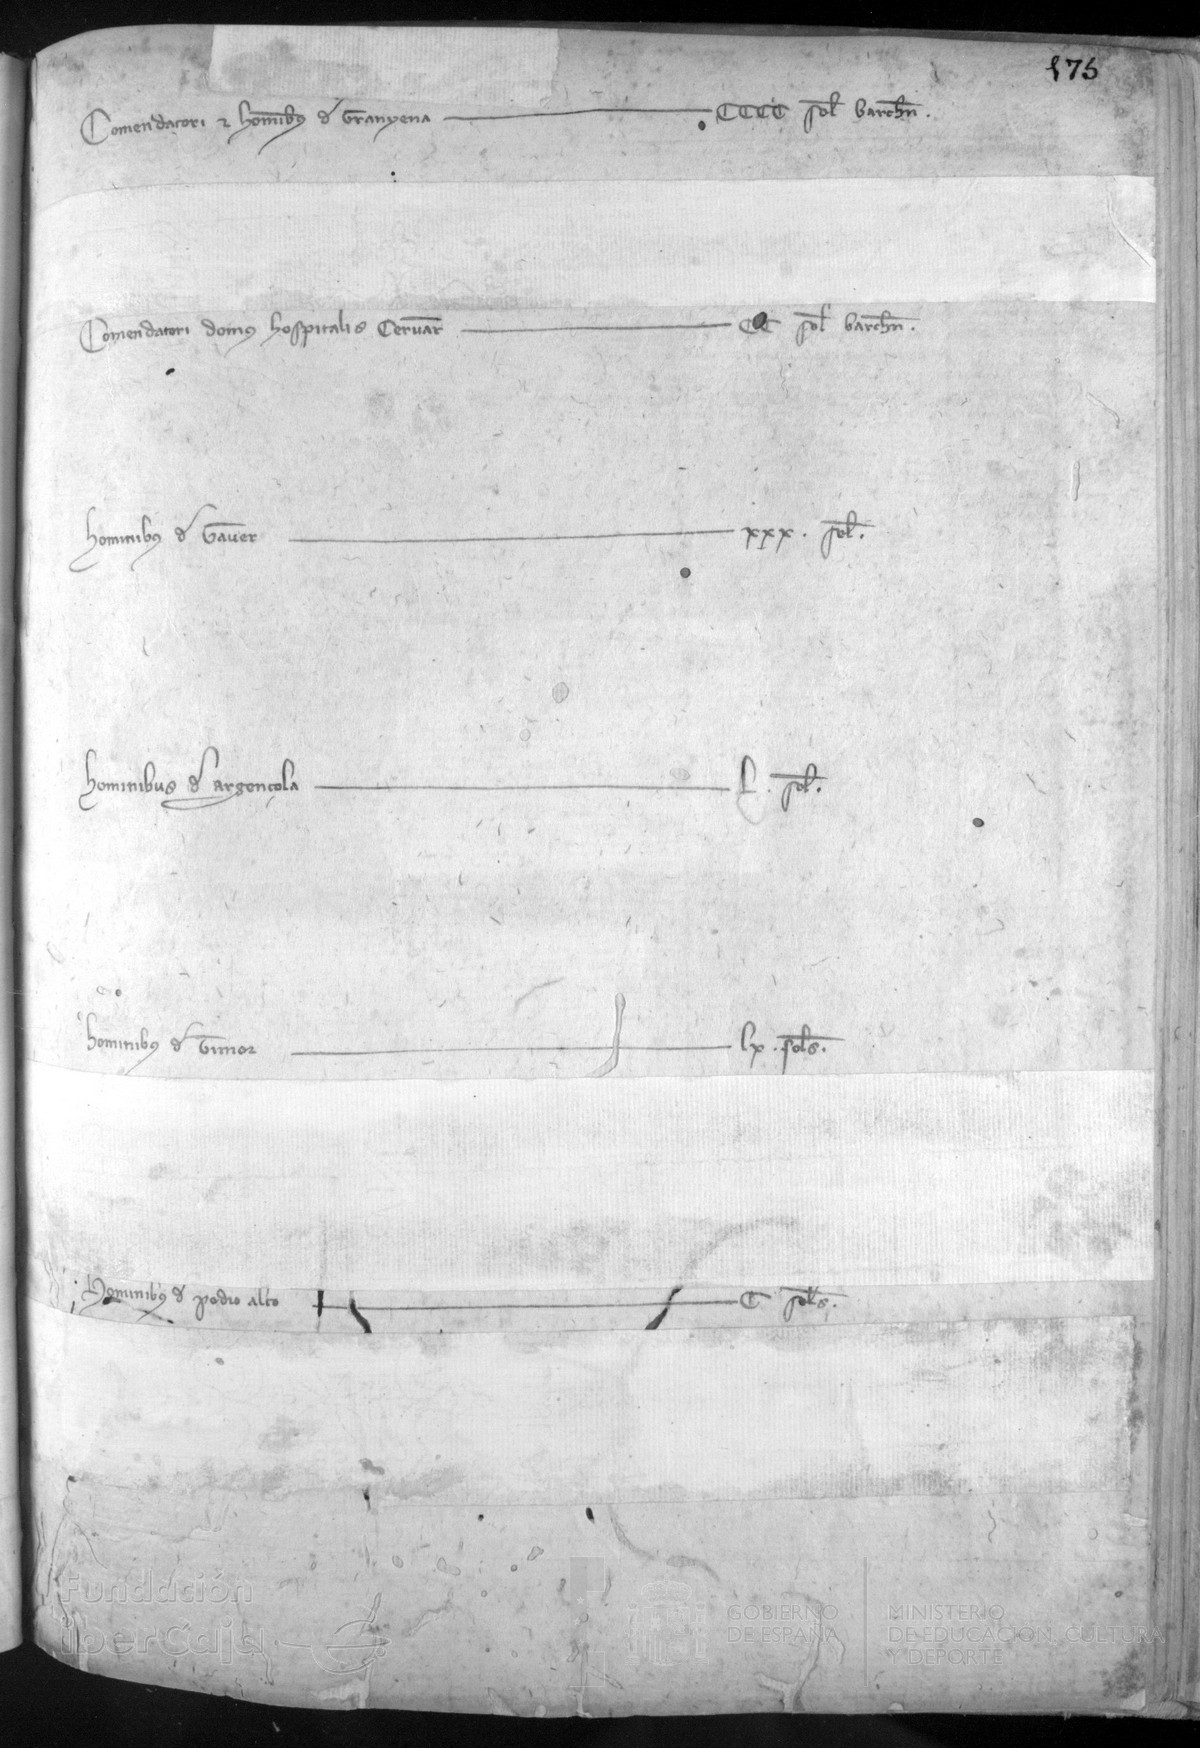 175
Comendatori ⁊ hominibꝰ đ Granyena CCCC sol barchn̄.
Comendatori domꝰ hospitalis Ceruar̄ CC sol barchn̄.
hominibꝰ đ Gauer xxx. sol.
hominibus đ argençola L. sol.
hominibꝰ đ Gimor lx. sols.
Hominibꝰ đ podio alto C sols.
Fundación
iberCaja
GOBIERNO
DE ESPAÑA
MINISTERIO
DE EDUCACIÓN, CULTURA
Y DEPORTE